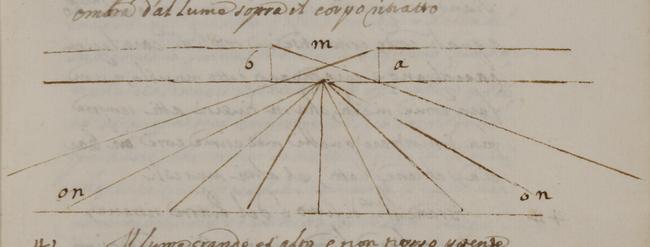 ombra dal lume sopra il corpo ritratto
m
b a
on on
Il lume grande et alto e non potente